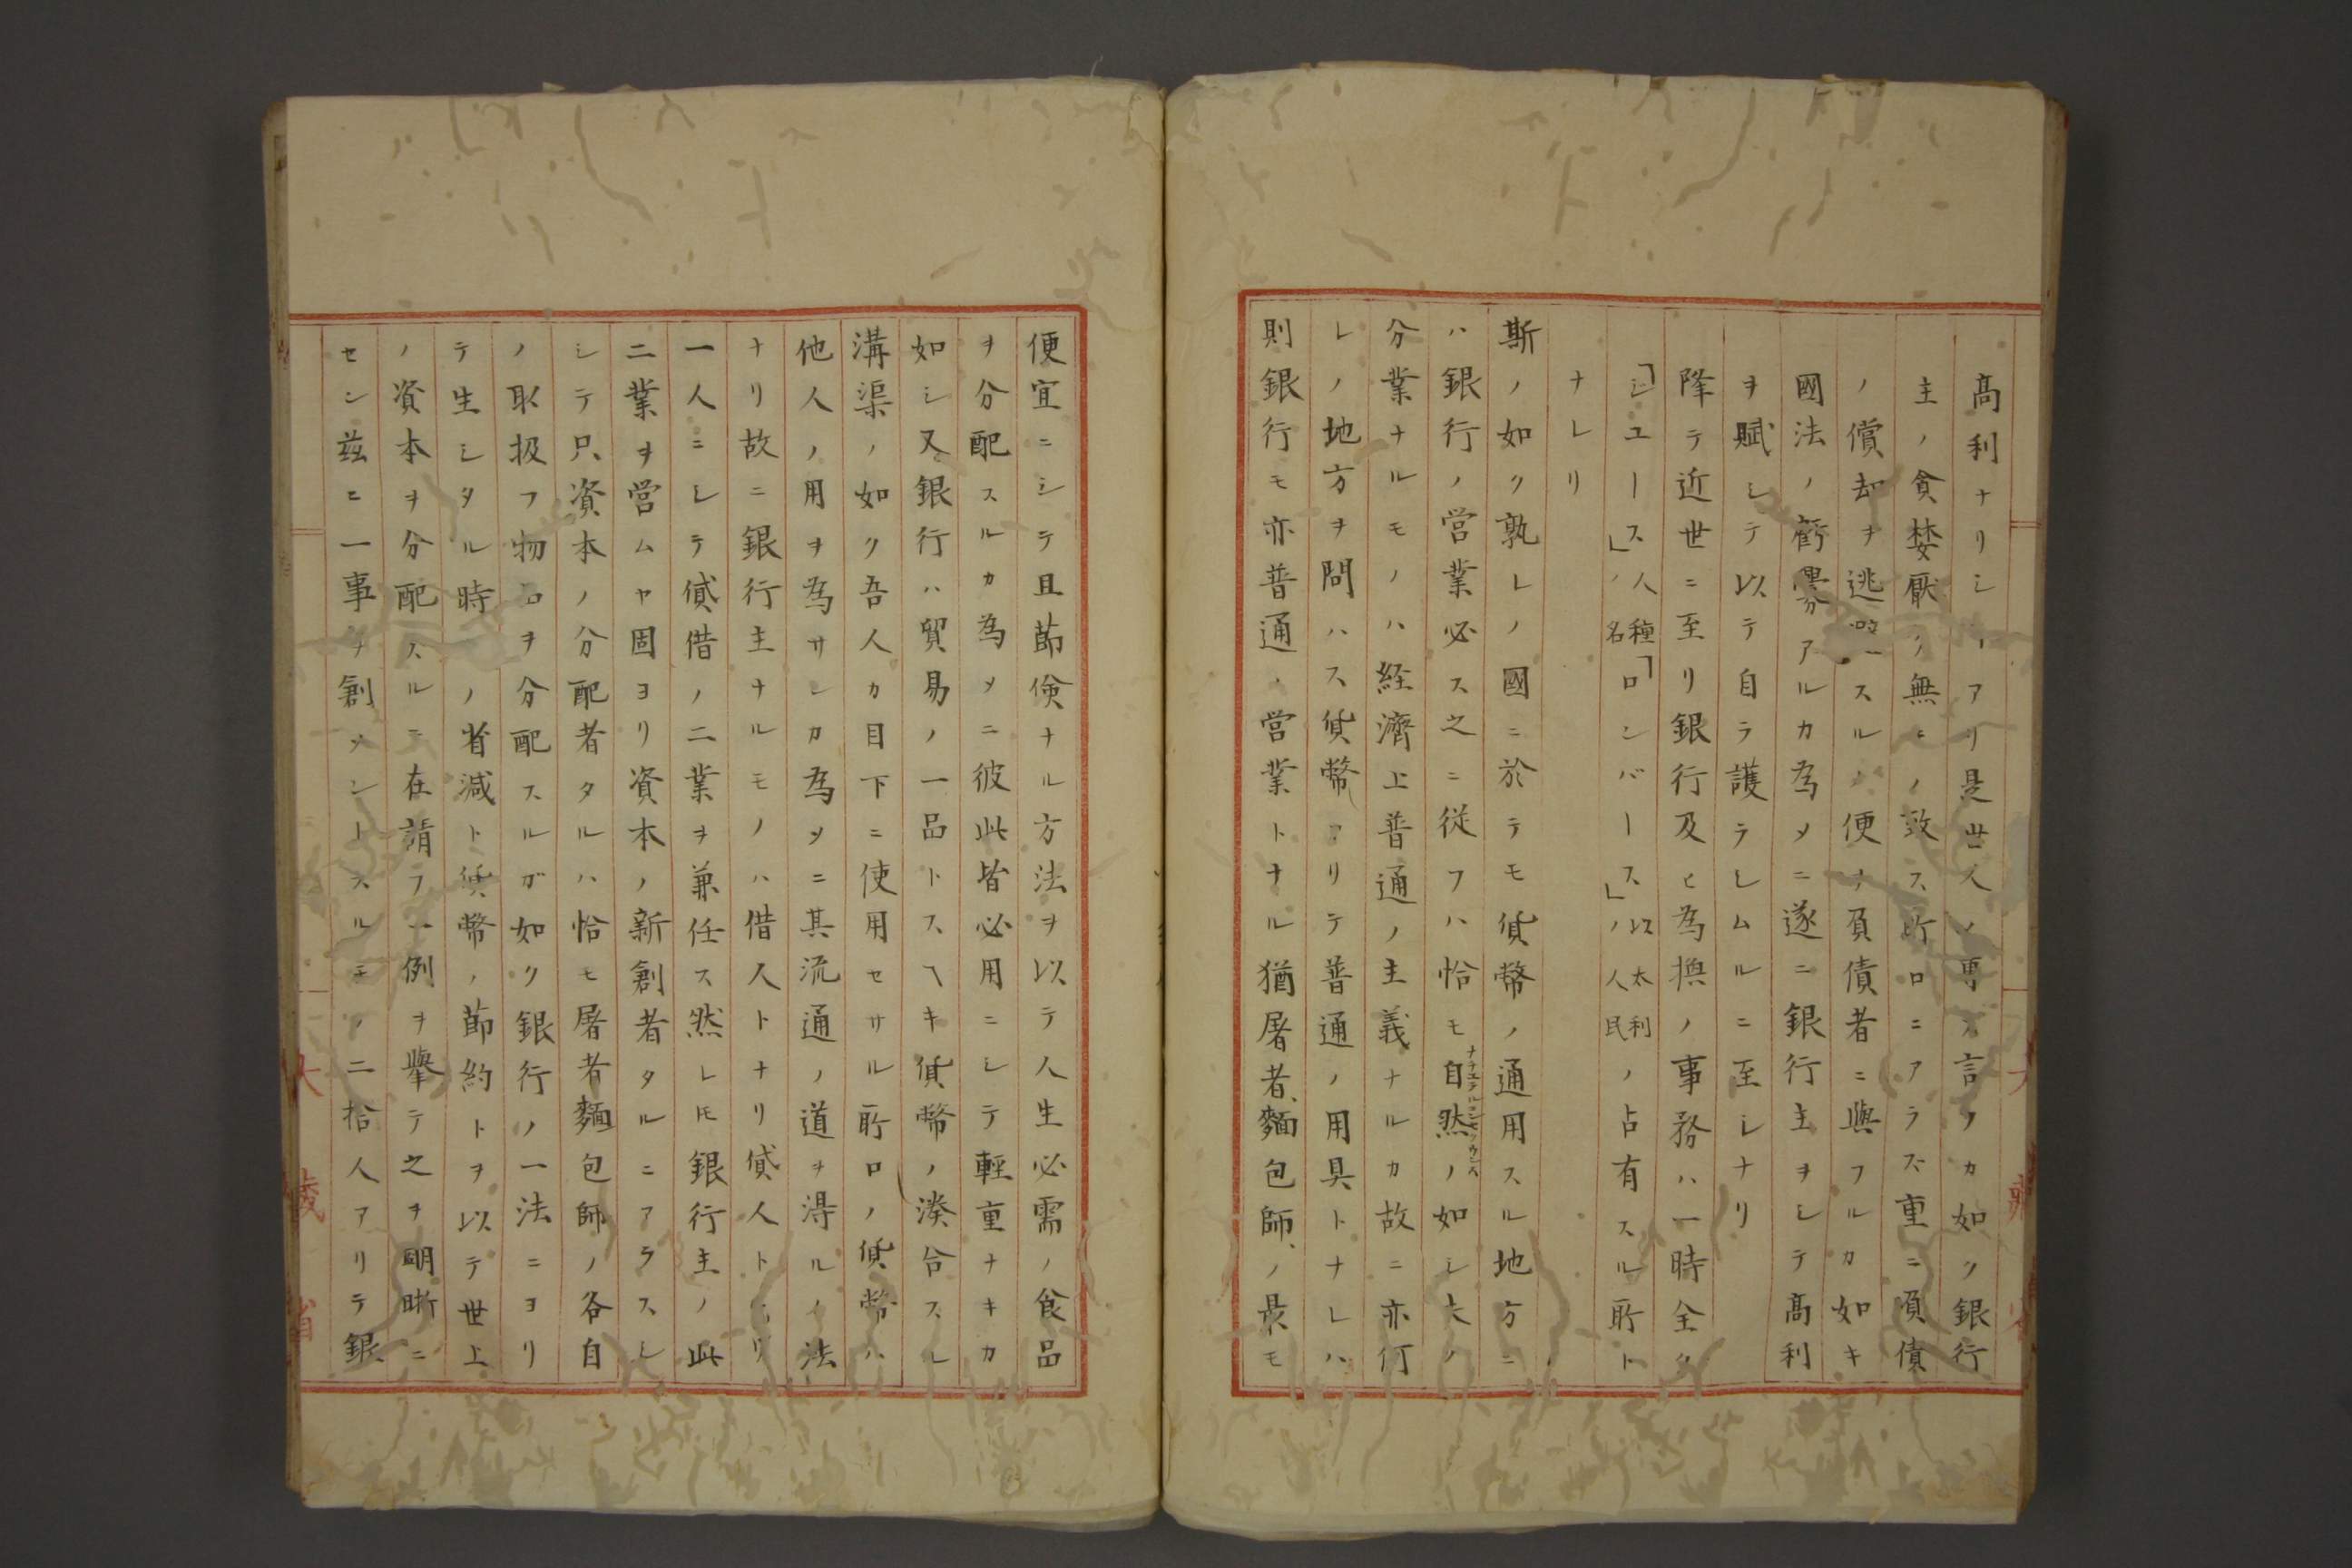 高利ナリシ アリ是世人ノ専ス言フカ如ク銀行
主ノ貪婪厭ク無キノ致ス所ロニアラズ重ニ負債
ノ償却ヲ逃 スルノ便ヲ負債者ニ與フルカ如キ
國法ノ虧 アルカ為メニ遂ニ銀行主ヲシテ髙利
ヲ賦シテ以テ自ラ護ラシムルニ至シナリ
降テ近世ニ至リ銀行及ヒ為換ノ事務ハ一時全ク
「シユース」人種名ノ「ロンバース」以太利ノ人民ノ占有スル所ト
ナレリ
斯ノ如ク孰レノ國ニ於テモ貨幣ノ通用スル地方ニ
ハ銀行ノ営業必ス之ニ従フハ恰モ自然ノ如シ夫ノ
分業ナルモノハ経濟上普通ノ主義ナルカ故ニ亦何
レノ地方ヲ問ハス貨幣アリテ普通ノ用具トナレハ
則銀行モ亦普通ノ営業トナル猶屠者、麺包師、ノ最モ
便宜ニシテ且節儉ナル方法ヲ以テ人生必需ノ食品
ヲ分配スルカ為メニ彼此皆必用ニシテ輕重ナキカ
如シ又銀行ハ貿易ノ一品トスヘキ貨幣ノ湊合スル
溝渠ノ如ク吾人カ目下ニ使用セサル所ロノ貨幣ハ
他人ノ用ヲ為サシカ為メニ其流通ノ道ヲ得ルノ法
ナリ故ニ銀行主ナルモノハ借人トナリ貸人トナリ
一人ニシテ貸借ノ二業ヲ兼任ス然レ𪜈銀行主ノ此
二業ヲ営ムヤ固ヨリ資本ノ新創者タルニアラスシ
シテ只資本ノ分配者タルハ恰モ屠者麺包師ノ各自
ノ取扱フ物品ヲ分配スルガ如ク銀行ノ一法ニヨリ
テ生シタル時 ノ省減ト貨幣ノ節約トヲ以テ世上
ノ資本ヲ分配スルニ在請フ一例ヲ擧テ之ヲ明晰ニ
セン茲ニ一事ヲ創メントスルモノ二拾人アリテ銀